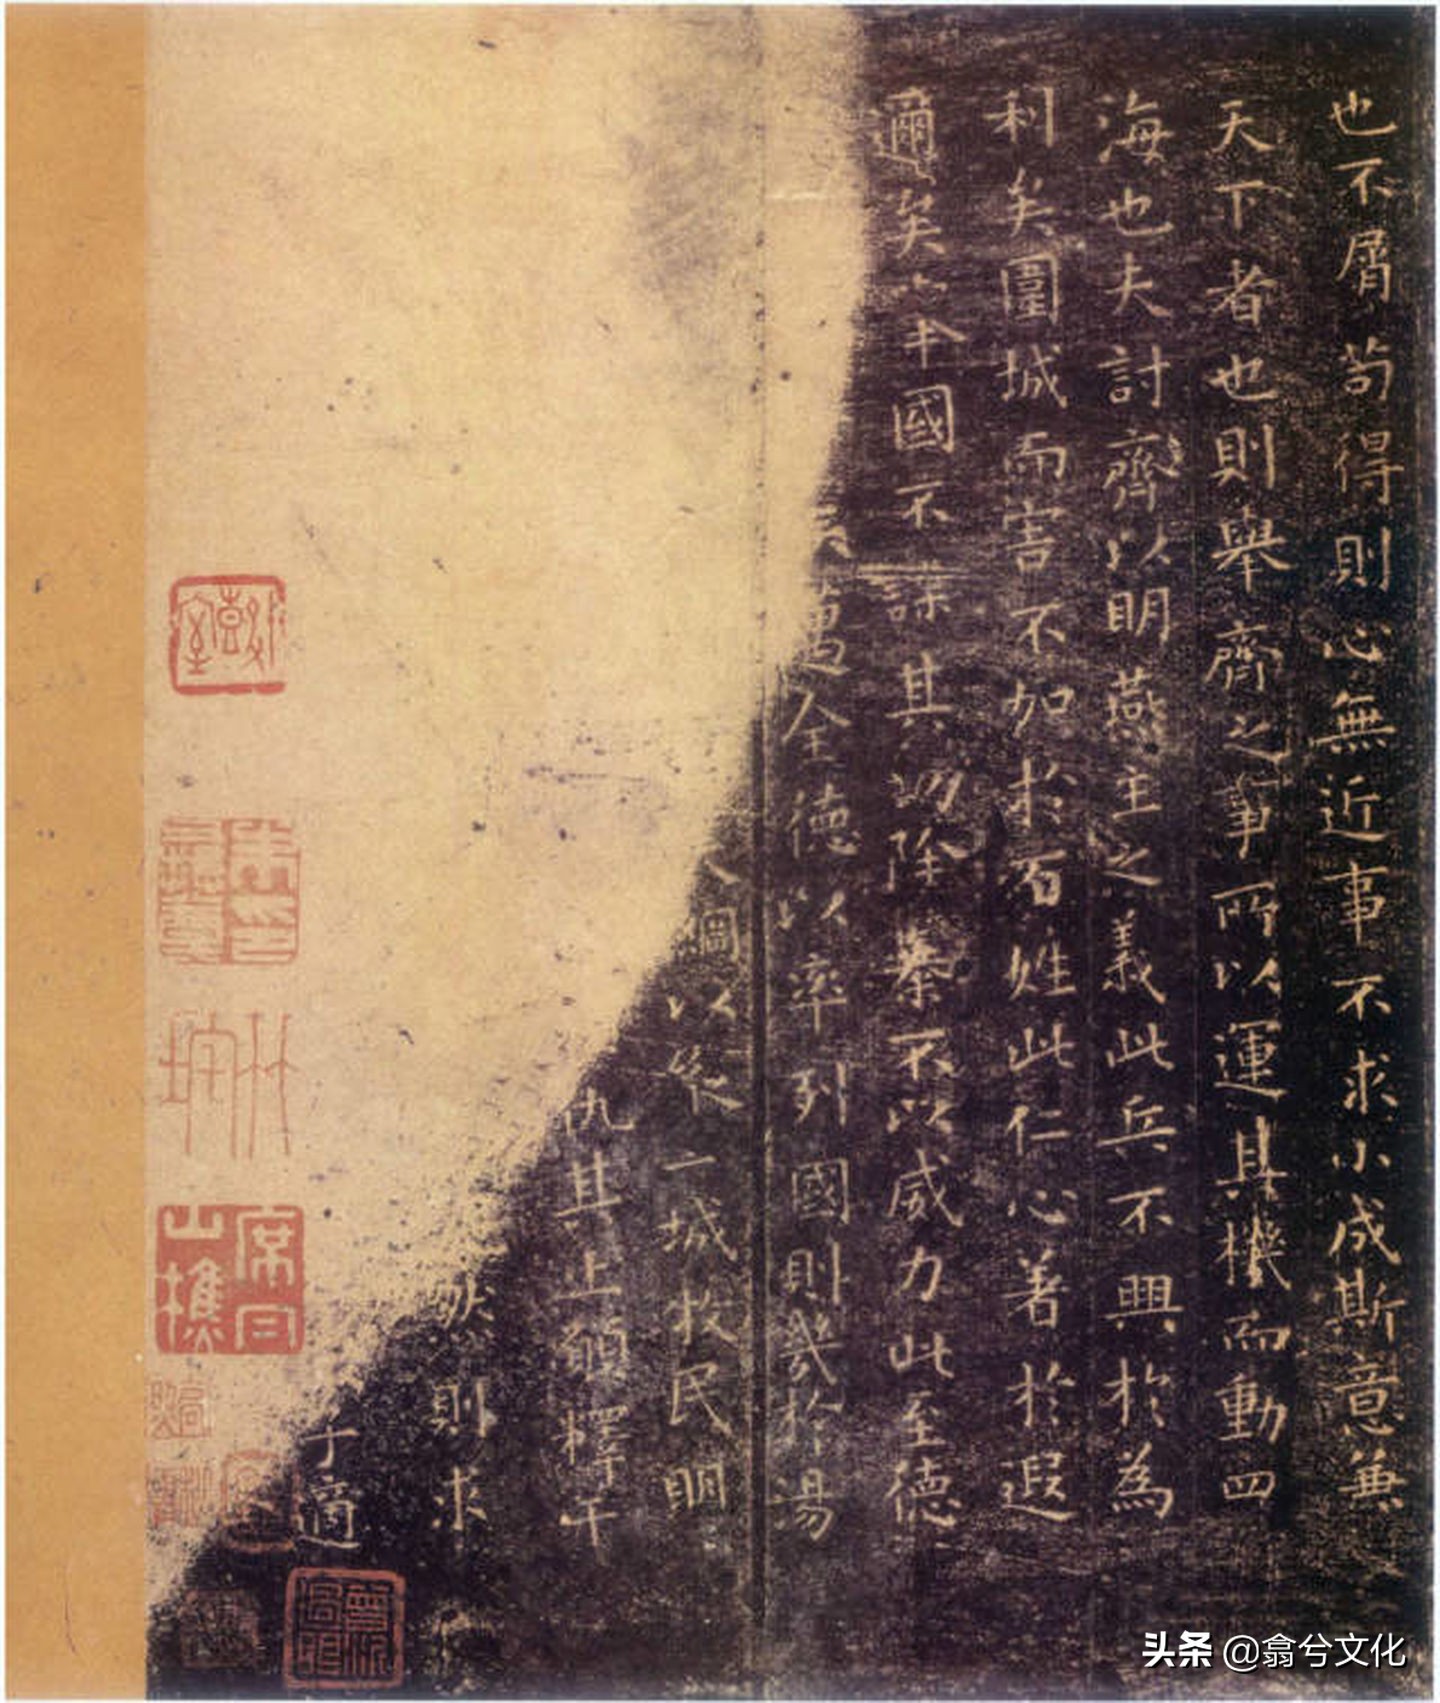 也不屑苟得則心無近事不求小成斯意兼
天下者也則舉齊之事所以運其機而動四
海也夫討齊以明燕主之義此兵不興於為
利矣圍城而害不加於百姓此仁心著於遐
邇矣本國不謀其功除暴不以威力此至德
全德以率列國則幾於湯
綱以縱二城牧民明
仇其上願釋干
然則求
于適
席曰山樵
头条 @翕兮文化